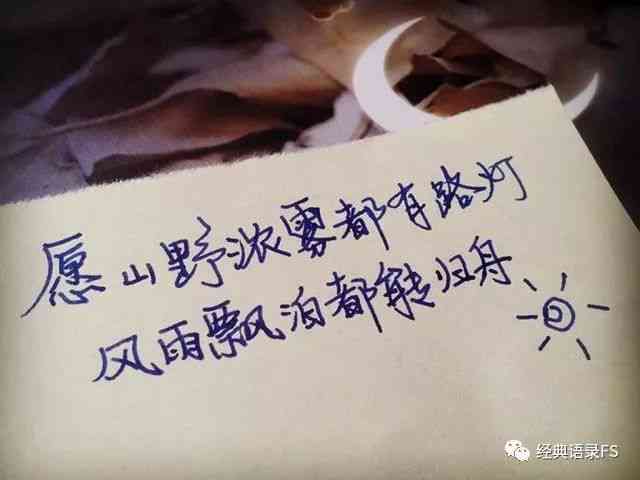 愿山野浓雾都有路灯
风雨飘泊都转归舟
经典语录FS